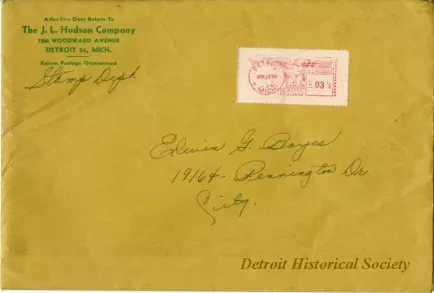 After Five Days Return To
The J. L. Hudson Company
1206 WOODWARD AVENUE
DETROIT 26, MICH.
Return Postage Guaranteed
Stamp Dept.
DETROIT
MICH
03
Edwin G. Boyes
19164- Pennington Dr.
City.
Detroit Historical Society